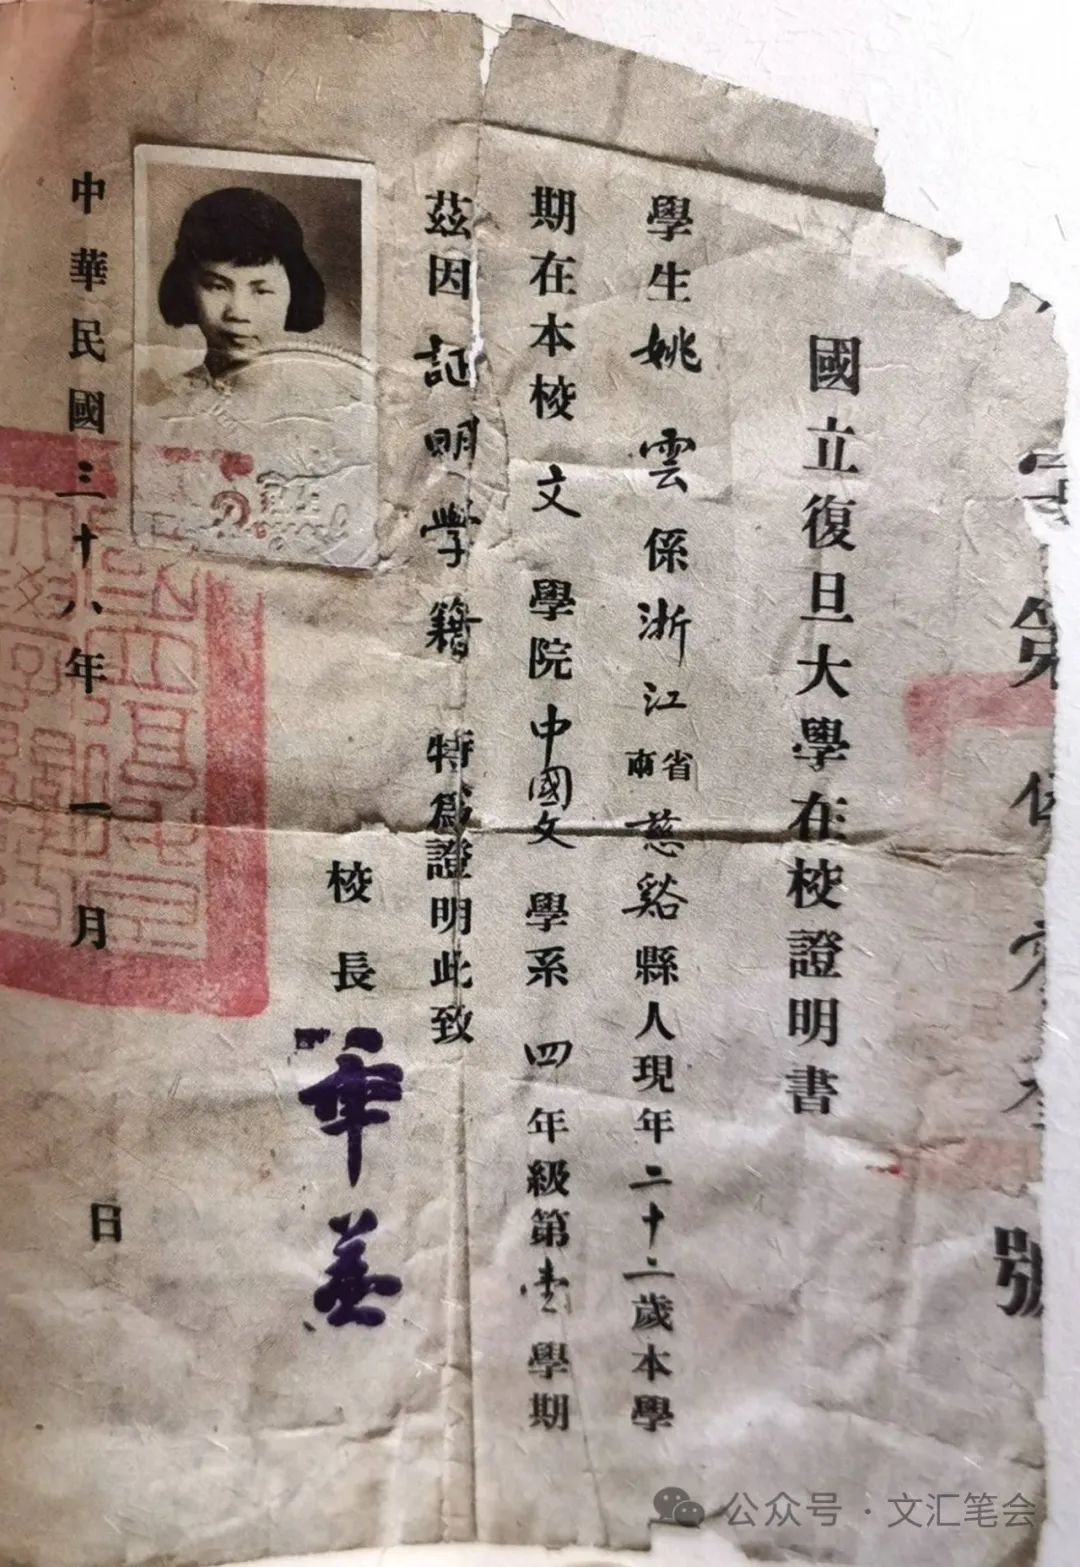 第
號
國立復旦大學在校證明書
學生姚雲係浙江省市慈谿縣人現年二十二歲本學
期在本校文學院中國文學系四年級第壹學期
茲因証明学籍特為證明此致
校長章益
中華民國三十八年一月 日
公众号·文汇笔会